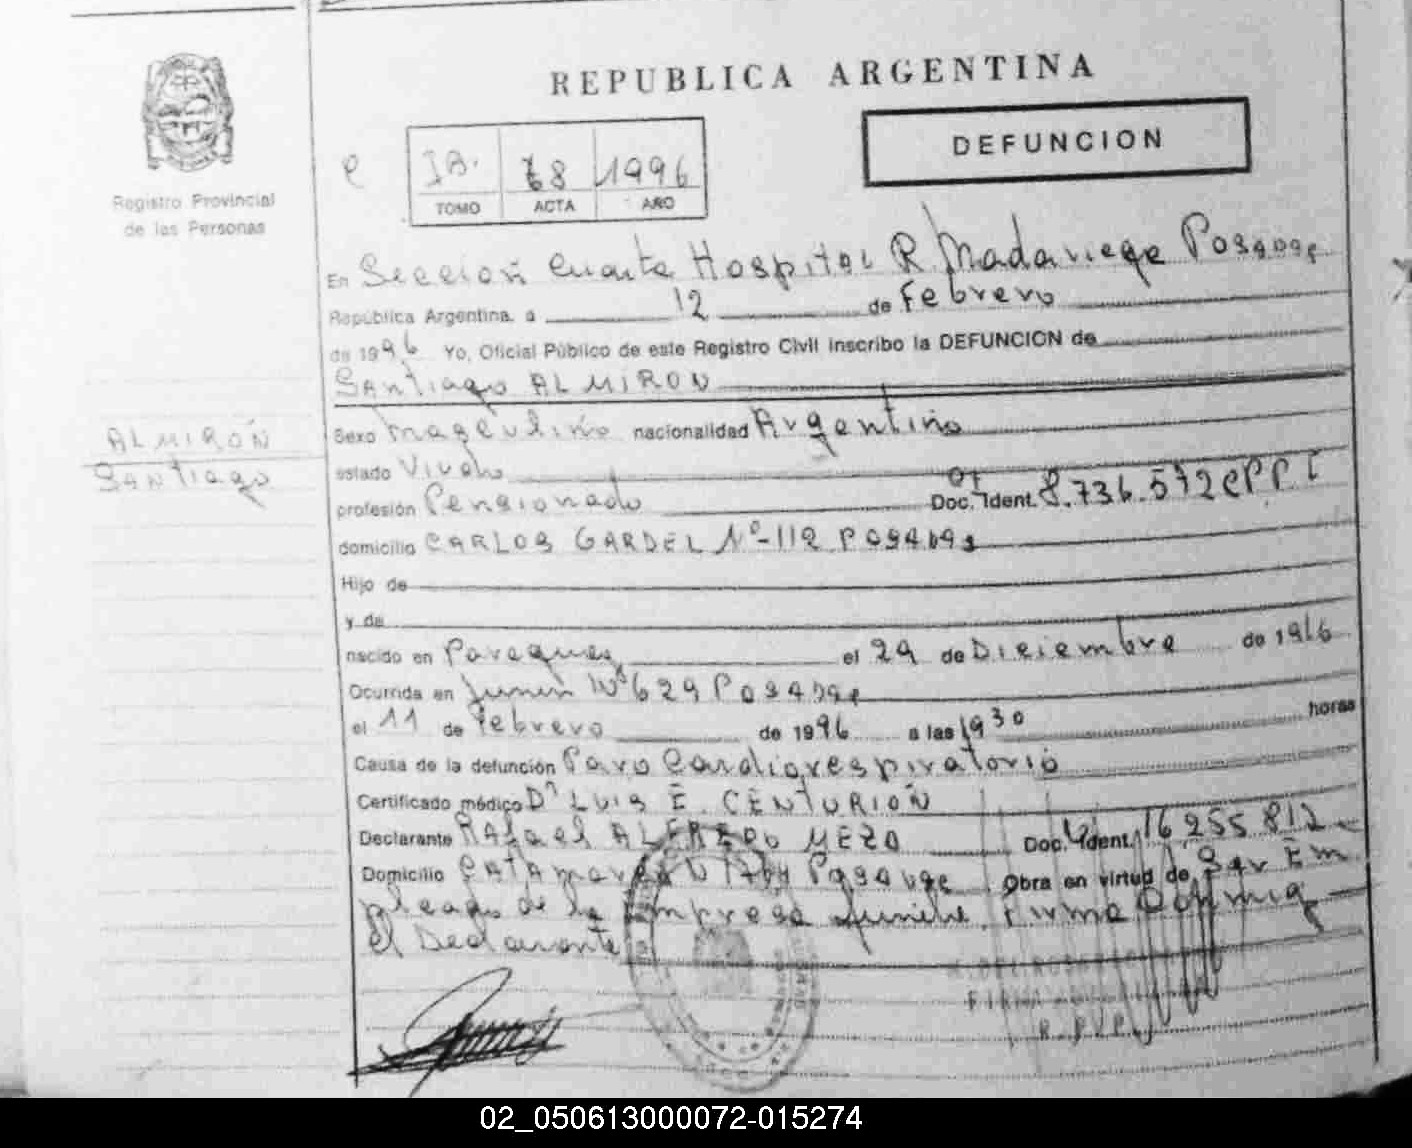 REPUBLICA ARGENTINA
DEFUNCION
Registro Provincial
de las Personas
e
IB. 68 1996
TOMO ACTA AÑO
En Sección Cuarta Hospital R. Madariaga Posadas
República Argentina, a 12 de Febrero
de 1996 Yo, Oficial Público de este Registro Civil inscribo la DEFUNCION de
Santiago ALMIRON
ALMIRÓN
Santiago
Sexo Masculino nacionalidad Argentino
estado Viudo
profesión Pensionado Doc. Ident. 8.736.572
domicilio CARLOS GARDEL Nº-112 Posadas
Hijo de
y de
nacido en Paraguay el 29 de Diciembre de 1916
Ocurrida en Junin Nº 629 Posadas
el 11 de Febrero de 1996 a las 19 30 horas
Causa de la defunción Paro Cardiorespiratorio
Certificado médico Dr LUIS E. CENTURIÓN
Declarante Rafael ALFREDO MEZA Doc. Ident. 16.255.812
Domicilio CATAmarca Nº 1764 Posadas Obra en virtud de Ser Em
pleado de la Empresa funebre. Firma Conmigo
El Declarante
02_050613000072-015274